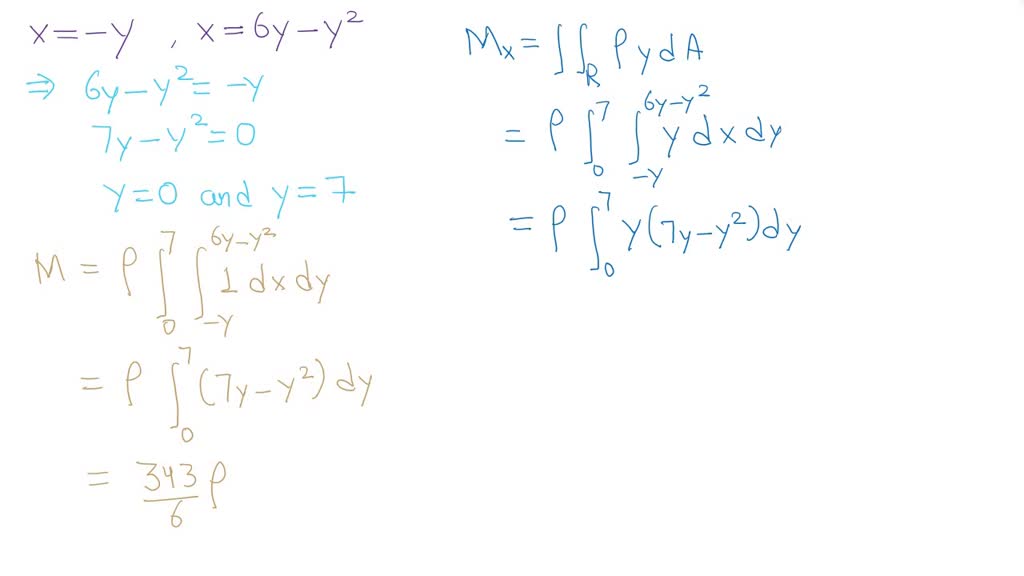 x = -y , x = 6y - y²
⇒ 6y - y² = -y
7y - y² = 0
y = 0 and y = 7
M = ρ ∫₀⁷ ∫_{-y}^{6y-y²} 1 dx dy
= ρ ∫₀⁷ (7y - y²) dy
= 343/6 ρ
Mₓ = ∫∫_R ρ y dA
= ρ ∫₀⁷ ∫_{-y}^{6y-y²} y dx dy
= ρ ∫₀⁷ y (7y - y²) dy